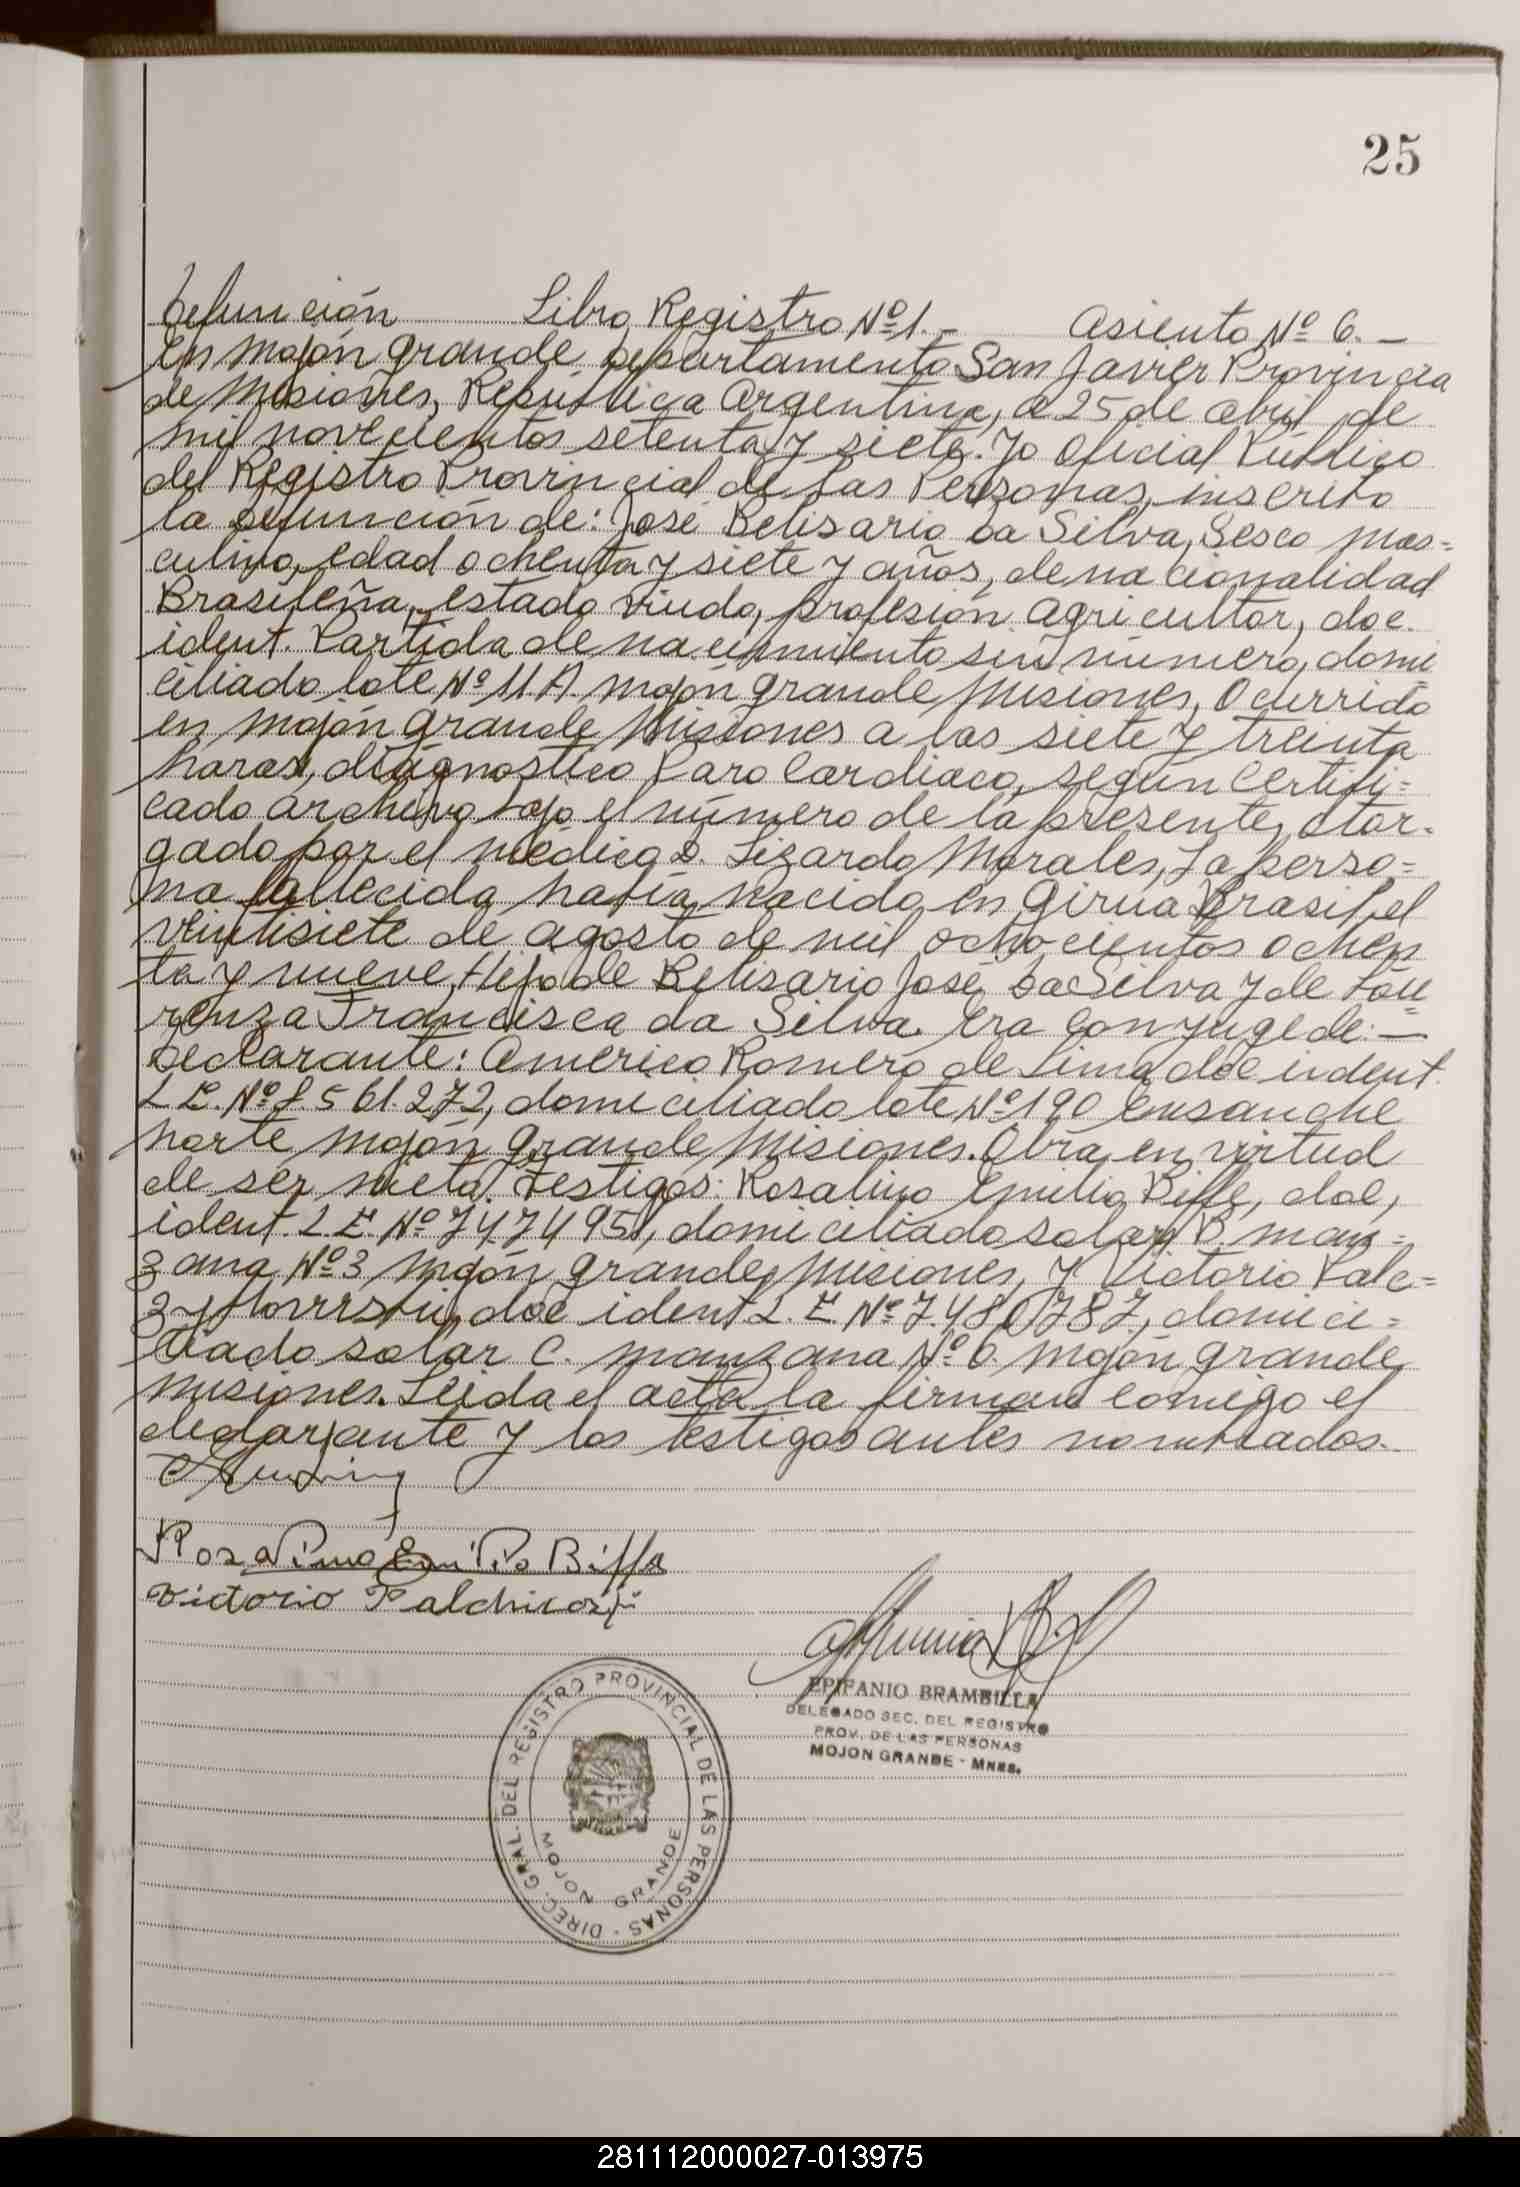 25
Defunción Libro Registro Nº 1.- Asiento Nº 6.-
En Mojón Grande, Departamento San Javier Provincia
de Misiones, República Argentina, a 25 de abril de
mil novecientos setenta y siete. Yo Oficial Público
del Registro Provincial de las Personas, inscribo
la defunción de: José Belisario Da Silva, Sesco mas=
culino, edad ochenta y siete y años, de nacionalidad
Brasileña, estado viudo, profesión agricultor, doc.
ident. Partida de nacimiento sin número, domi
ciliado lote Nº 11.A. Mojón grande Misiones, Ocurrido
en Mojón Grande Misiones a las siete y treinta
horas, diágnostico Paro Cardiaco, según Certifi=
cado archivo bajo el número de la presente, otor-
gado por el médico D. Lizardo Morales, La perso=
na fallecida había nacido en Girua Brasil, el
veintisiete de agosto de mil ochocientos ochen
ta y nueve, Hijo de Belisario José Da Silva y de Lau
renza Francisca da Silva. Era conyuge de: —
Declarante: Americo Romero de Lima, doc ident.
L E. Nº 8.561.272, domiciliado lote Nº 190 Ensanche
norte Mojón Grande, Misiones. Obra en virtud
de ser nieto. Testigos: Rosalino Emilio Biffe, doc,
ident. L.E. Nº 7474951, domiciliado solar B. man=
zana Nº 3 Mojón Grande, Misiones, y Victorio Palc=
doc ident L.E. Nº 7.480787, domici=
liado solar C. manzana Nº 6. Mojón grande,
Misiones. Leida el acta la firman comigo el
declarante y los testigos antes nombrados.-
Rozalino Emilio Biffe
Victorio
EPIFANIO BRAMBILLA
DELEGADO SEC. DEL REGISTRO
PROV. DE LAS PERSONAS
MOJON GRANDE - MNES.
DIREC. GRAL. DEL REGISTRO PROVINCIAL DE LAS PERSONAS -
MOJON GRANDE
281112000027-013975